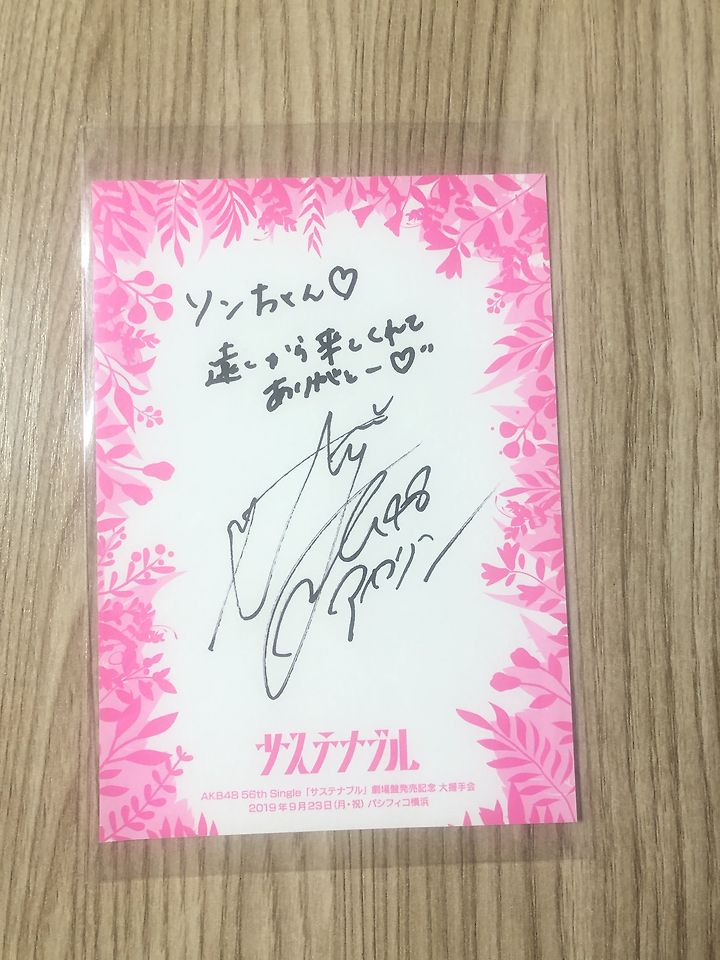 ソンちゃん♡
遠くから来てくれて
ありがとー♡
サステナブル
AKB48 56th Single「サステナブル」劇場盤発売記念 大握手会
2019年9月23日(月・祝) パシフィコ横浜